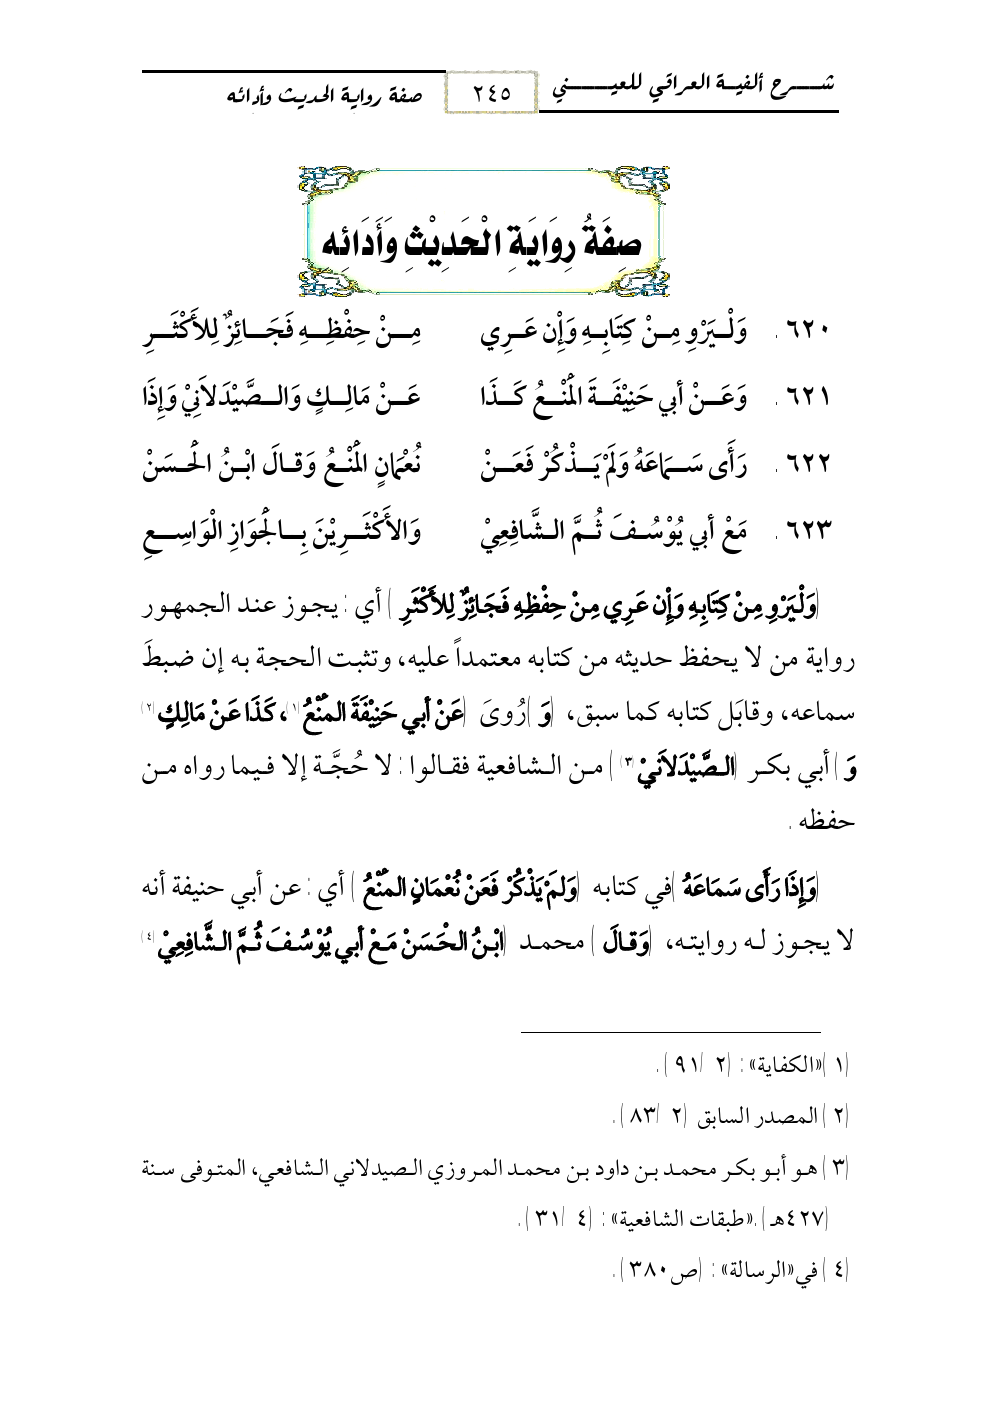 شـــرح ألفيـة العراقي للعيـــــني ٢٤٥ صفة رواية الحديث وأدائه
صِفَةُ رِوَايَةِ الْحَدِيْثِ وَأَدَائِه
٦٢٠. وَلْـيَرْوِ مِـنْ كِتَابِـهِ وَإِنْ عَـرِي مِــنْ حِفْظِــهِ فَجَــائِزٌ لِلأَكْثَــرِ
٦٢١. وَعَــنْ أبي حَنِيْفَــةَ المَنْــعُ كَــذَا عَــنْ مَالِــكٍ وَالــصَّيْدَلاَنِيْ وَإِذَا
٦٢٢. رَأَى سَــمَاعَهُ وَلَمْ يَــذْكُرْ فَعَــنْ نُعْمَانٍ المَنْـعُ وَقـالَ ابْـنُ الحَـسَنْ
٦٢٣. مَعْ أبي يُوْسُـفَ ثُـمَّ الـشَّافِعِيْ وَالأَكْثَــرِيْنَ بِــالجَوَازِ الْوَاسِــعِ
(وَلْيَرْوِ مِنْ كِتَابِهِ وَإِن عَرِي مِنْ حِفْظِهِ فَجَائِزٌ لِلأَكْثَرِ) أي: يجوز عند الجمهور
رواية من لا يحفظ حديثه من كتابه معتمداً عليه، وتثبت الحجة به إن ضبطَ
سماعه، وقابَل كتابه كما سبق، (وَ) رُويَ (عَنْ أبي حَنِيْفَةَ المَنْعُ(١)، كَذَا عَنْ مَالِكٍ(٢)
وَ) أبي بكر (الصَّيْدَلاَنيْ(٣)) من الشافعية فقالوا: لا حُجَّة إلا فيما رواه من
حفظه.
(وَإِذَا رَأَى سَمَاعَهُ) في كتابه (وَلمْ يَذْكُرْ فَعَنْ نُعْمَانٍ المَنْعُ) أي: عن أبي حنيفة أنه
لا يجوز له روايته، (وَقالَ) محمد (ابْنُ الحَسَنْ مَعْ أبي يُوْسُفَ ثُمَّ الشَّافِعِيْ(٤)
(١) «الكفاية»: (٢/ ٩١).
(٢) المصدر السابق (٢/ ٨٣).
(٣) هو أبو بكر محمد بن داود بن محمد المروزي الصيدلاني الشافعي، المتوفى سنة
(٤٢٧هـ). «طبقات الشافعية»: (٤/ ٣١).
(٤) في «الرسالة»: (ص٣٨٠).